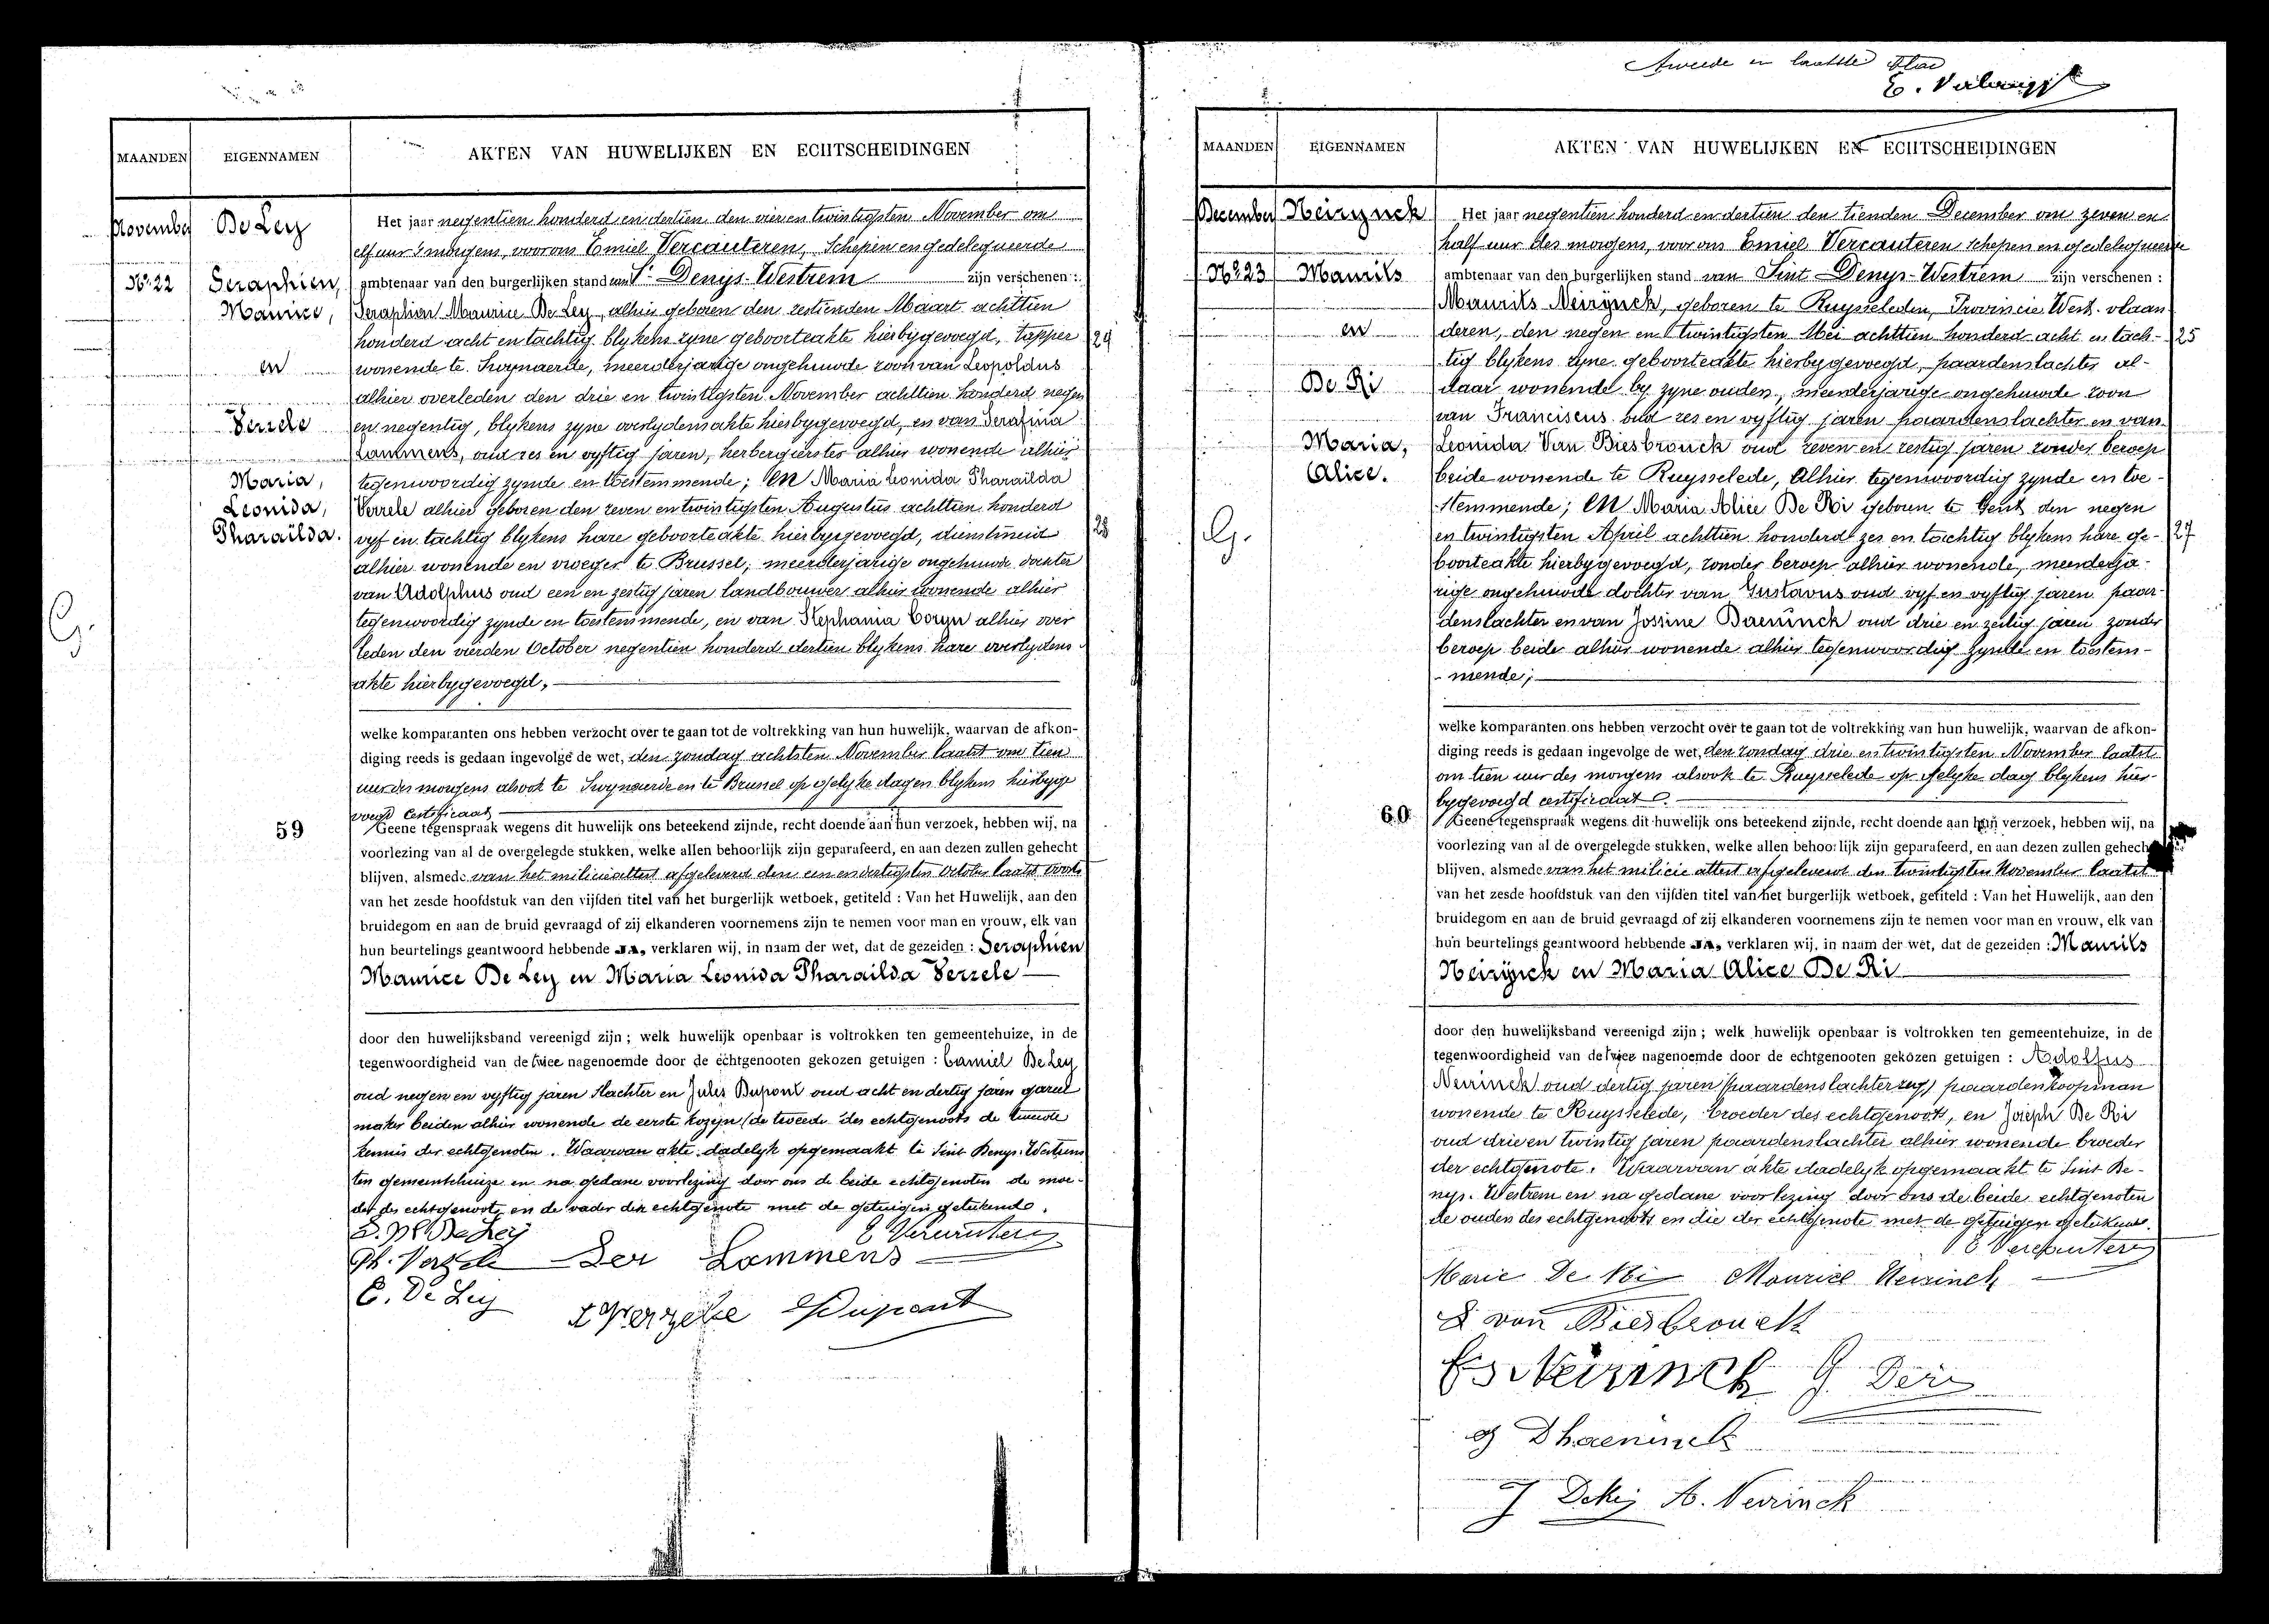 MAANDEN
EIGENNAMEN
AKTEN VAN HUWELIJKEN EN ECHTSCHEIDINGEN
November
No 22
De Ley
Seraphien,
Maurice,
en
Verzele
Maria,
Leonida,
Pharaïlda.
G.
59
Het jaar negentien honderd en dertien den vier en twintigsten November om
elf uur 's morgens, voor ons Emiel Vercauteren, Schepen en gedelegueerde
ambtenaar van den burgerlijken stand van St Denys-Westrem zijn verschenen :
Seraphien Maurice De Ley, alhier geboren den zestienden Maart achttien
honderd acht en tachtig blykens zyne geboorteakte hierbygevoegd, tapper
29
wonende te Swynaerde, meerderjarige ongehuwde zoon van Leopoldus
alhier overleden den drie en twintigsten November achttien honderd negen
en negentig, blykens zyne overlydensakte hierbygevoegd, en van Serafina
Lammens, oud zes en vyftig jaren, herbergierster alhier wonende alhier
tegenwoordig zynde en toestemmende; en Maria Leonida Pharaïlda
Verzele alhier geboren den zeven en twintigsten Augustus achttien honderd
vyf en tachtig blykens hare geboorteakte hierbygevoegd, dienstmeid
28
alhier wonende en vroeger te Brussel, meerderjarige ongehuwde dochter
van Adolphus oud een en zestig jaren landbouwer alhier wonende alhier
tegenwoordig zynde en toestemmende, en van Stephania Coryn alhier over
leden den vierden October negentien honderd dertien blykens hare overlydens-
akte hierbygevoegd,
welke komparanten ons hebben verzocht over te gaan tot de voltrekking van hun huwelijk, waarvan de afkon-
diging reeds is gedaan ingevolge de wet, den zondag achtsten November laatst om tien
uur des morgens alsook te Swynaerde en te Brussel op gelyke dagen blykens hierbyge
voegd certificaat
Geene tegenspraak wegens dit huwelijk ons beteekend zijnde, recht doende aan hun verzoek, hebben wij, na
voorlezing van al de overgelegde stukken, welke allen behoorlijk zijn geparafeerd, en aan dezen zullen gehecht
blijven, alsmede van het milicieattest afgeleverd den een en dertigsten October laatst
van het zesde hoofdstuk van den vijfden titel van het burgerlijk wetboek, getiteld : Van het Huwelijk, aan den
bruidegom en aan de bruid gevraagd of zij elkanderen voornemens zijn te nemen voor man en vrouw, elk van
hun beurtelings geantwoord hebbende JA, verklaren wij, in naam der wet, dat de gezeiden : Seraphien
Maurice De Ley en Maria Leonida Pharailda Verzele
door den huwelijksband vereenigd zijn ; welk huwelijk openbaar is voltrokken ten gemeentehuize, in de
tegenwoordigheid van de twee nagenoemde door de echtgenooten gekozen getuigen : Camiel De Ley
oud negen en vyftig jaren slachter en Jules Dupont oud acht en dertig jaren gareel
maker beiden alhier wonende de eerste kozyn (de tweede des echtgenoots de tweede
kennis der echtgenoten. Waarvan akte dadelyk opgemaakt te Sint Denys-Westrem
ten gemeentehuize en na gedane voorlezing door ons de beide echtgenoten de moe-
der des echtgenoots en de vader der echtgenote met de getuigen geteekend.
S. M De Ley E Vercauteren
Ph. Verzele Ser Lammens
C. De Ley
Verzele Dupont
Tweede en laatste
MAANDEN
EIGENNAMEN
AKTEN VAN HUWELIJKEN EN ECHTSCHEIDINGEN
December
No 23
Neirynck
Maurits
en
De Ri
Maria,
Alice.
G.
60
Het jaar negentien honderd en dertien den tienden December om zeven en
half uur des morgens, voor ons Emiel Vercauteren schepen en gedelegueerde
ambtenaar van den burgerlijken stand van Sint Denys-Westrem zijn verschenen :
Maurits Neirÿnck, geboren te Ruysselede, Provincie West-vlaan
deren, den negen en twintigsten Mei achttien honderd acht en tach-
25
tig blykens zyne geboorteakte hierbygevoegd, paardenslachter al-
daar wonende by zyne ouders, meerderjarige ongehuwde zoon
van Franciscus oud zes en vyftig jaren paardenslachter en van
Leonida Van Biesbrouck oud zeven en zestig jaren zonder beroep
beide wonende te Ruysselede, alhier tegenwoordig zynde en toe-
stemmende; en Maria Alice De Ri geboren te Gent den negen
en twintigsten April achttien honderd zes en tachtig blykens hare ge-
27
boorteakte hierbygevoegd, zonder beroep alhier wonende, meerderja-
rige ongehuwde dochter van Gustavus oud vyf en vyftig jaren paar-
denslachter en van Jossine Daeninck oud drie en zestig jaren zonder
beroep beide alhier wonende alhier tegenwoordig zynde en toestem-
- mende;
welke komparanten ons hebben verzocht over te gaan tot de voltrekking van hun huwelijk, waarvan de afkon-
diging reeds is gedaan ingevolge de wet, den zondag drie en twintigsten November laatst
om tien uur des morgens alsook te Ruysselede op gelyke dag blykens hier-
bygevoegd certificaat
Geene tegenspraak wegens dit huwelijk ons beteekend zijnde, recht doende aan hun verzoek, hebben wij, na
voorlezing van al de overgelegde stukken, welke allen behoorlijk zijn geparafeerd, en aan dezen zullen gehecht
blijven, alsmede van het milicie attest afgeleverd den twintigsten November laatst
van het zesde hoofdstuk van den vijfden titel van het burgerlijk wetboek, getiteld : Van het Huwelijk, aan den
bruidegom en aan de bruid gevraagd of zij elkanderen voornemens zijn te nemen voor man en vrouw, elk van
hun beurtelings geantwoord hebbende JA, verklaren wij, in naam der wet, dat de gezeiden : Maurits
Neirÿnck en Maria Alice De Ri
door den huwelijksband vereenigd zijn ; welk huwelijk openbaar is voltrokken ten gemeentehuize, in de
tegenwoordigheid van de twee nagenoemde door de echtgenooten gekozen getuigen : Adolfus
Neirinck oud dertig jaren (paardenslachter zeg) paardenkoopman
wonende te Ruysselede, broeder des echtgenoots, en Joseph De Ri
oud drie en twintig jaren paardenslachter alhier wonende broeder
der echtgenote. Waarvan akte dadelyk opgemaakt te Sint De-
nys-Westrem en na gedane voorlezing door ons de beide echtgenoten
de ouders des echtgenoots en die der echtgenote met de getuigen geteekend.
E Vercauteren
Marie De Ri Maurice Neirinck
L van Biesbrouck
Fs Neirinck G. Deri
J Dhaeninck
J Deki A. Neirinck